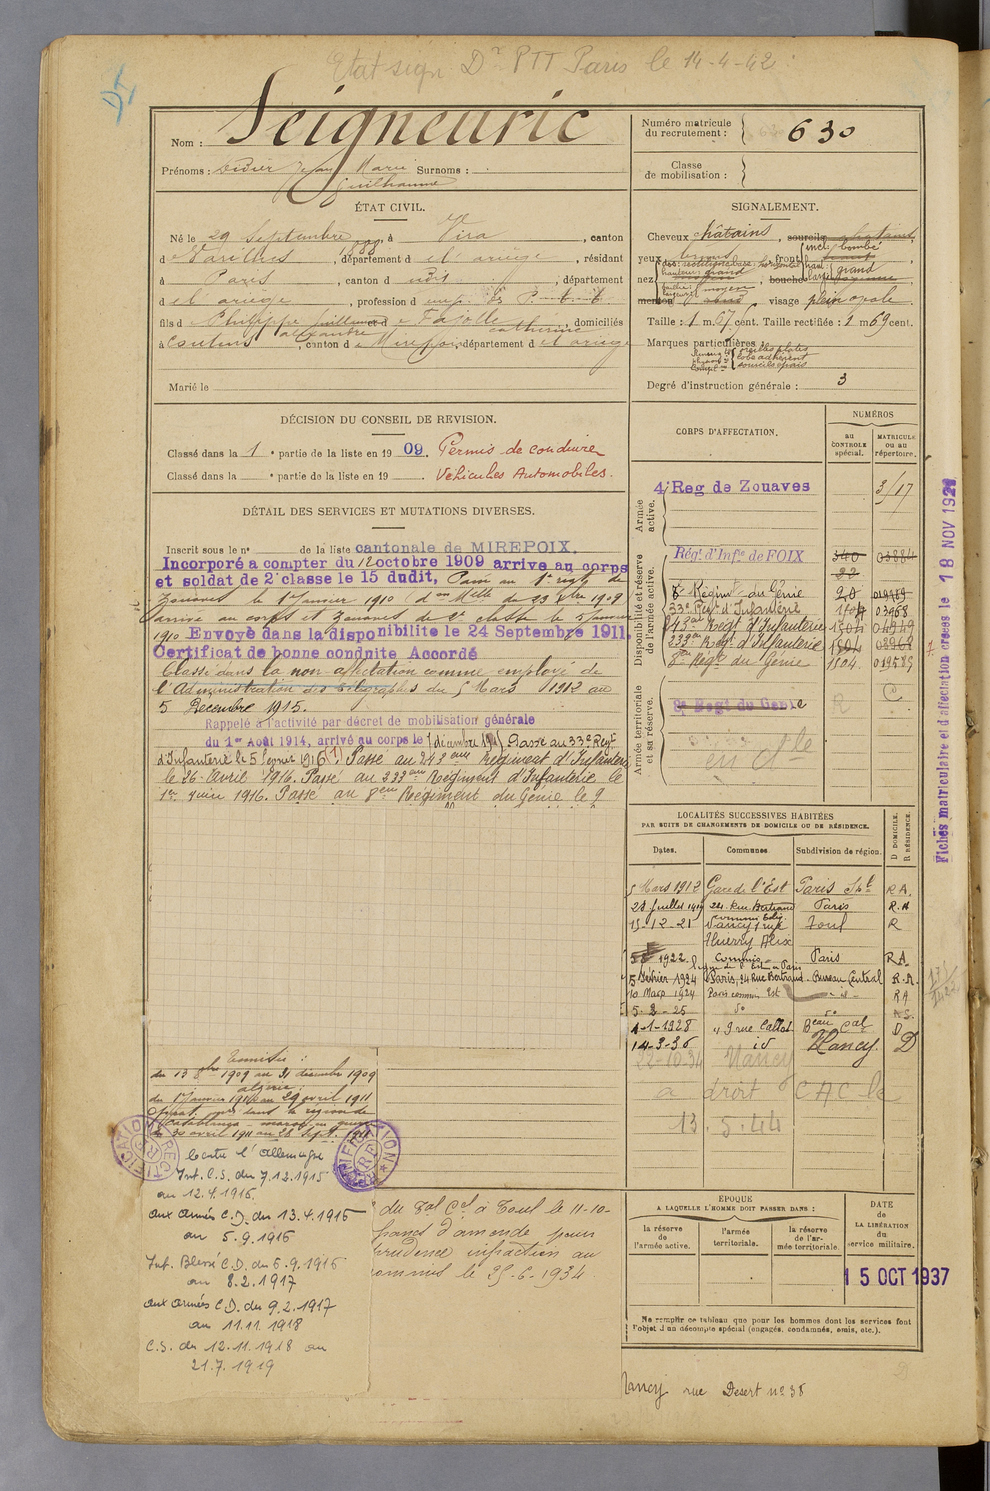 Etat sign Dr PTT Paris le 14-4-42
Nom : Seigneuric
Prénoms : Didier Jean Marie Surnoms :
Guilhaume
Numéro matricule
du recrutement : 630
Classe
de mobilisation :
ÉTAT CIVIL.
Né le 29 Septembre 1888, à Vira, canton
de Varilhes, département d et ariège, résidant
à Paris, canton d udit, département
d et ariège, profession d emp. des P.t.t.
fils d Philippe et d e Fajolle catherine, domiciliés
à Coutens, canton d e Mirepoix, département d et ariège
Marié le
SIGNALEMENT.
Cheveux châtains, sourcils châtains
yeux, front incl. bombé
haut. grand
nez, bouche moyenne
menton, visage plein ovale.
Taille : 1 m. 67 cent. Taille rectifiée : 1 m 69 cent.
Marques particulières :
oreilles plates
lobe adhérent
sourcils épais
Degré d'instruction générale : 3
DÉCISION DU CONSEIL DE REVISION.
Classé dans la 1e partie de la liste en 1909. Permis de conduire
Classé dans la e partie de la liste en 19 . Véhicules Automobiles.
DÉTAIL DES SERVICES ET MUTATIONS DIVERSES.
Inscrit sous le n° de la liste cantonale de MIREPOIX.
Incorporé a compter du 12 octobre 1909 arrive au corps
et soldat de 2e classe le 15 dudit, Passé au 4e régt de
Zouaves le 1er Janvier 1910 (don Mlle du 23 Xbre 1909
arrive au corps et Zouaves de 2e classe le 5 Janvier
1910 Envoyé dans la disponibilité le 24 Septembre 1911.
Certificat de bonne conduite Accordé
Classé dans la non affectation comme employé de
l'Administration des télégraphes du 5 Mars 1912 au
5 Décembre 1915.
Rappelé à l'activité par décret de mobilisation générale
du 1er Août 1914, arrivé au corps le 7 décembre 1915 Passé au 33e Régt
d'Infanterie le 5 1916 (1) Passé au 243eme Régiment d'Infanterie
le 26 Avril 1916. Passé au 233eme Régiment d'Infanterie le
1er Juin 1916. Passé au 8eme Régiment du Génie le 9
CORPS D'AFFECTATION.
NUMÉROS
AU CONTROLE spécial.
MATRICULE ou au répertoire.
Armée active.
4e Reg de Zouaves 3/17
Disponibilité et réserve de l'armée active.
Régt d'Infie de FOIX 340 03884
22
8e Régiment du Génie 20 019469
33e Régt d'Infanterie 1504 03968
243e Régt d'Infanterie 1504 04949
233e Régt d'Infanterie 1504 03968
8e Régt du Génie 1504. 019489
Armée territoriale et sa réserve.
8e Regt du Genie R C
en dlle
Fiches matriculaire et d'affectation créées le 18 NOV 1928
LOCALITÉS SUCCESSIVES HABITÉES
PAR SUITE DE CHANGEMENTS DE DOMICILE OU DE RÉSIDENCE.
Dates. Communes. Subdivision de région. D DOMICILE. R RÉSIDENCE.
5 Mars 1912 Gare de l'Est Paris R A.
28 Juillet 1919 24 Rue Bertrand Paris R. A
15-12-21 Nancy 1 rue Toul R
Thierry Alix
1922. Commis Paris R A.
ligne de l'Est à Paris
5 Février 1924 Paris, 24 Rue Bertrand Bureau Central R. A.
10 Mars 1924 Paris commis Est - id - R A
5-2-25 do do
4-1-1928 " 9 rue Callot Beau Cal D
14-3-36 id Nancy. D
22-10-34 Nancy
a droit CAC le
13.5.44
Tunisie :
du 13 8bre 1909 au 31 décembre 1909
algérie :
du 1er Janvier 1910 au 29 avril 1911
Opérat. dans la région de
Casablanca - maroc
du 30 avril 1911 au 28 Sept. 1911
RECTIFICATION
RF
Contre l'Allemagne
Int. C.S. du 7.12.1915
au 12.4.1916.
aux armées C.D. du 13.4.1916
au 5.9.1916
Int. Blessé C.D. du 6.9.1916
au 8.2.1917
aux armées C.D. du 9.2.1917
au 11.11.1918
C.S. du 12.11.1918 au
21.7.1919
du Bal Cel à Toul le 11-10-
francs d'amende pour
prudence infraction au
commis le 25-6-1934
ÉPOQUE
A LAQUELLE L'HOMME DOIT PASSER DANS :
la réserve de l'armée active.
l'armée territoriale.
la réserve de l'armée territoriale.
DATE DE LA LIBÉRATION du service militaire.
15 OCT 1937
Ne remplir ce tableau que pour les hommes dont les services font
l'objet d'un décompte spécial (engagés, condamnés, omis, etc.).
Nancy rue Desert n° 38